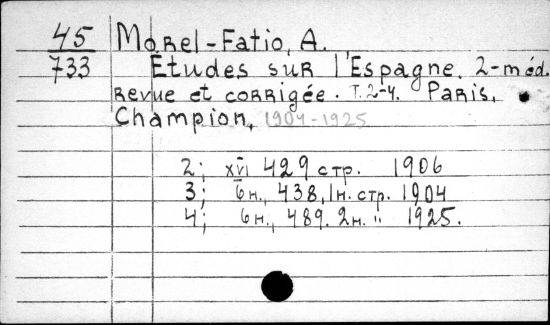 45 Morel-Fatio, A.
733 Études sur l'Espagne. 2-méd.
revue et corrigée. T.2-4. Paris,
Champion, 1904-1925
2; XVI 429 стр. 1906
3; 6н., 438, 1н. стр. 1904
4; 6н., 489. 2н. " 1925.